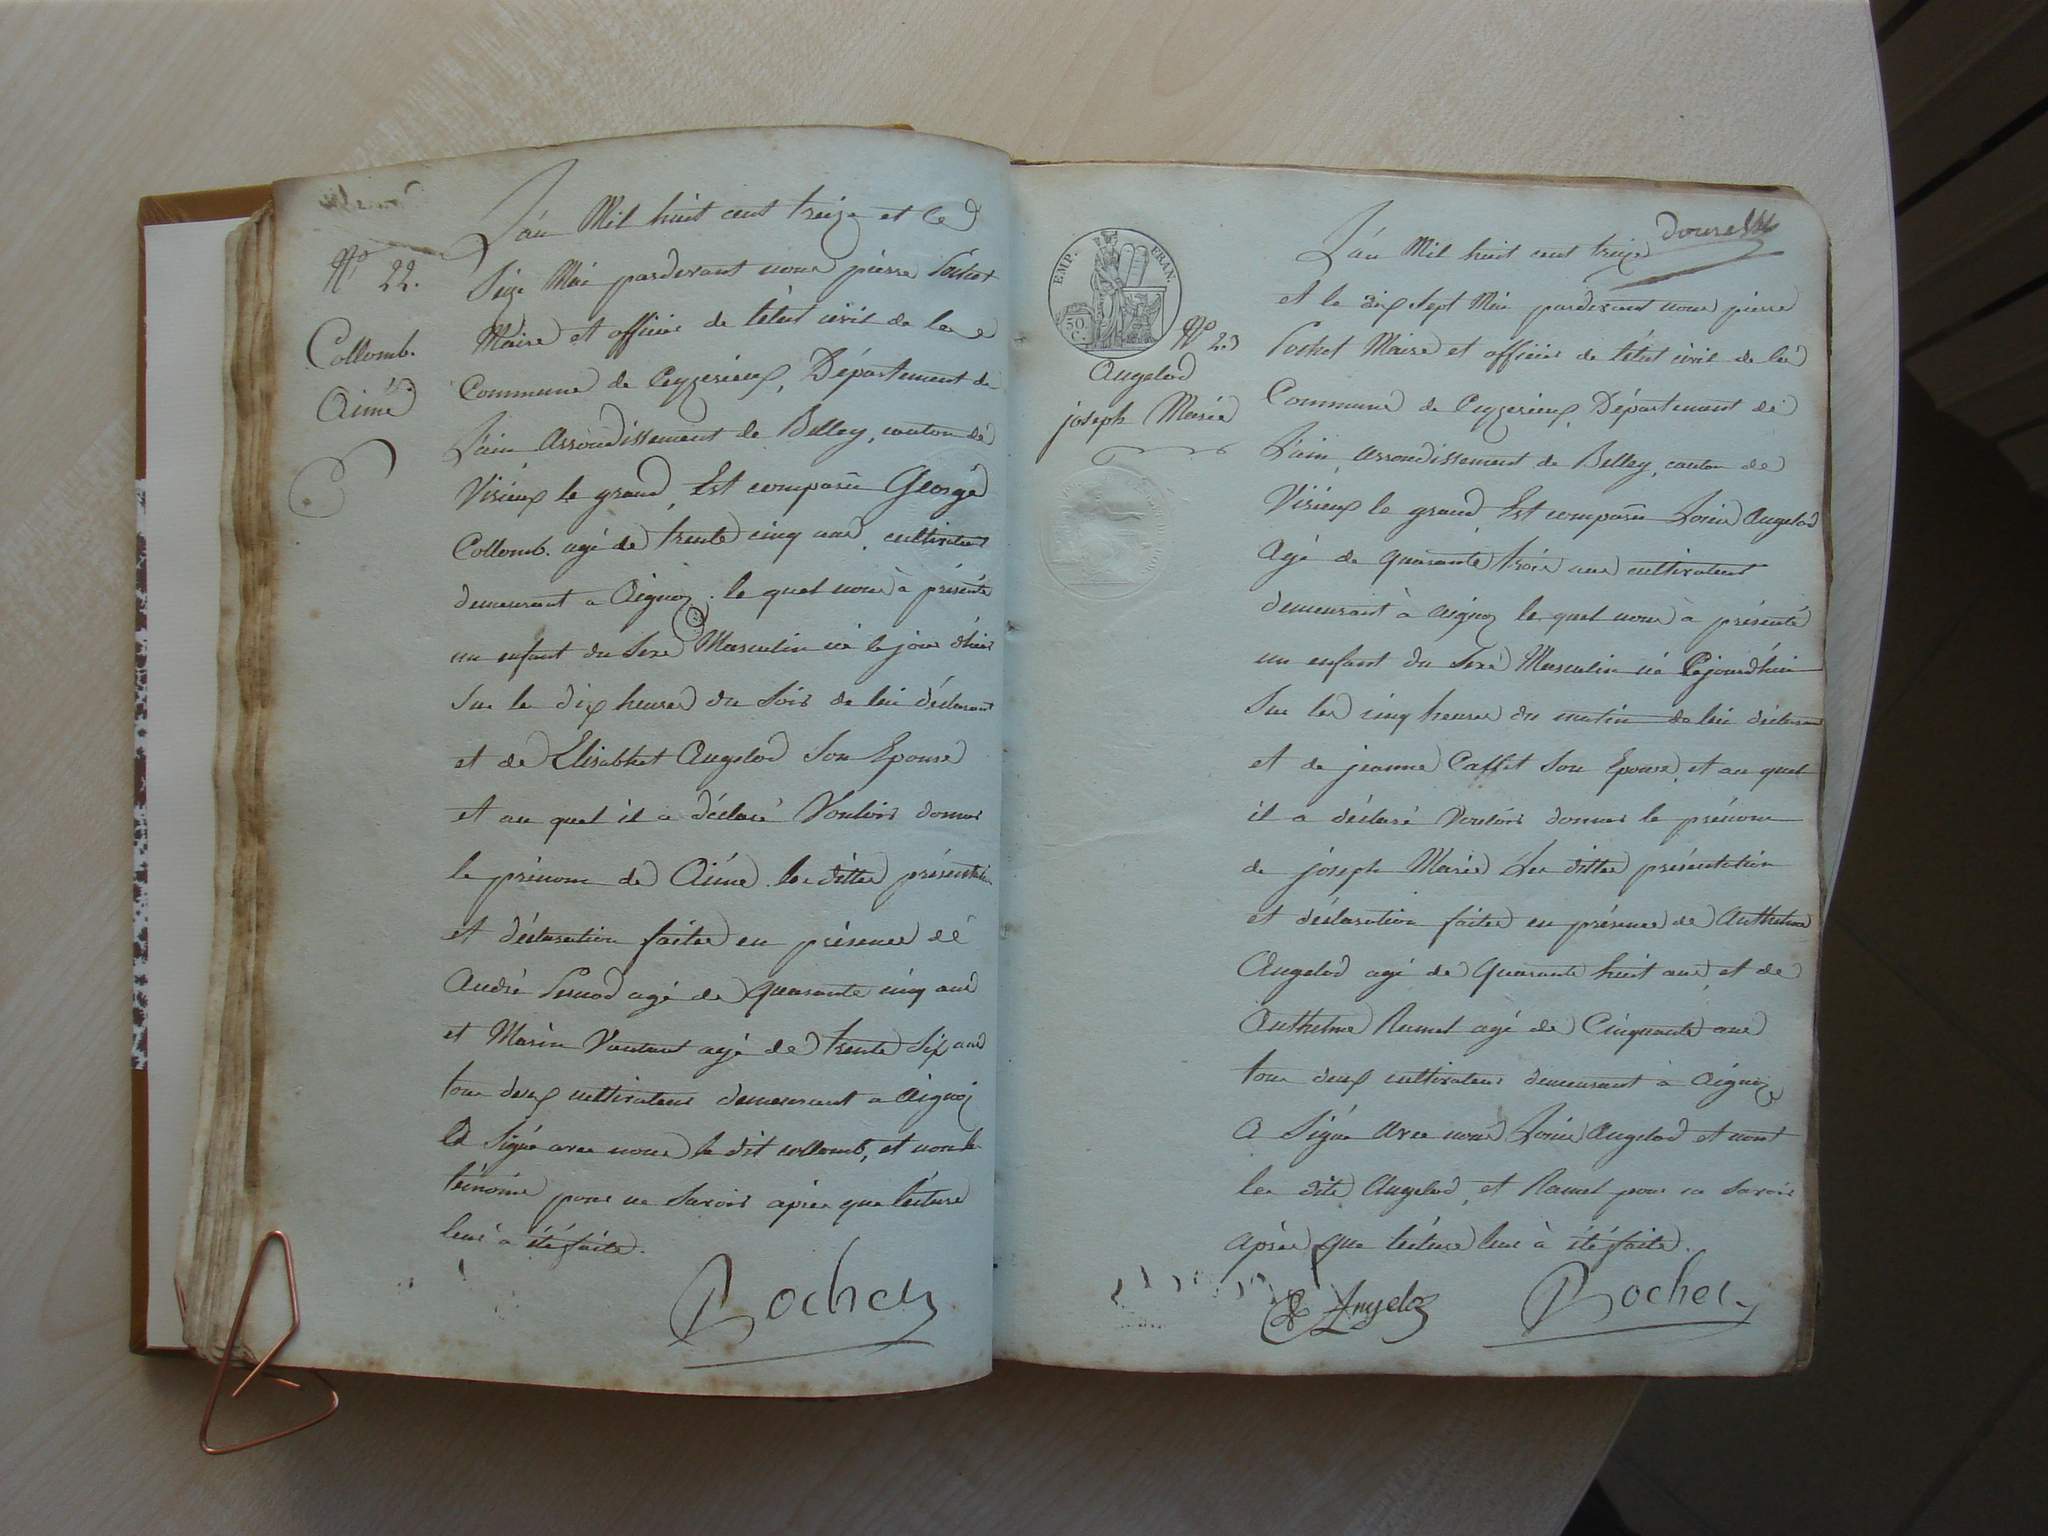 N.º 22.
Collomb.
Aimé
L'an Mil huit cent treize et le
Seize Mai pardevant nous pierre Pochet
Maire et officier de létat civil de la
Commune de Ceyzerieux, Département de
L'ain arrondissement de Belley, canton de
Virieux le grand, Est comparu George
Collomb. agé de trente cinq ans, cultivateur
demeurant a Aignoz, le quel nous à présenté
un enfant du Sexe Masculin né le jour d'hier
Sur les dix heures du Soir de lui déclarant
et de Elisabhet Angelod Son Epouse
et au quel il a déclaré Vouloir donner
le prénom de Aimé. les dittes présentation
et déclaration faites en présence de
André Pernod agé de quarante cinq ans
et Marin agé de trente Six ans
tous deux cultivateurs demeurant a Aignoz
a Signé avec nous le dit collomb, et non les
témoins pour ne Savoir après que lecture
leur a été faite.
Pochet
douze
EMP. FRAN.
50 C.
N.º 23
Angelod
joseph Marie
L'an Mil huit cent treize
et le dix Sept Mai pardevant nous pierre
Pochet Maire et officier de létat civil de la
Commune de Ceyzerieux, Département de
L'ain, arrondissement de Belley, canton de
Virieux le grand, Est comparu Louis Angelod
Agé de quarante trois ans cultivateur
demeurant à aignoz le quel nous a présenté
un enfant du Sexe Masculin né Cejourdhui
Sur les cinq heures du matin de lui déclarant
et de jeanne Caffet Son Epouse, et au quel
il a déclaré Vouloir donner le prénom
de joseph Marie Les dittes présentation
et déclaration faites en présence de Anthelme
Angelod agé de quarante huit ans, et de
Anthelme Ramel agé de Cinquante ans
tous deux cultivateurs demeurant à Aignoz
a Signé avec nous Louis Angelod et nont
les dits Angelod, et Ramel pour ne Savoir
Après que lecture leur à été faite.
Angeloz
Pochet